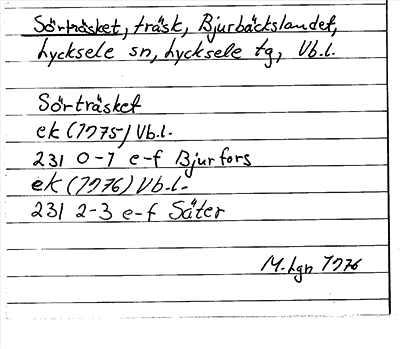 Sörträsket, träsk, Bjurbäckslandet,
Lycksele sn, Lycksele tg, Vb.l.
Sörträsket
ek (1975) Vb.l.
231 0-1 e-f Bjurfors
ek (1976) Vb.l.
231 2-3 e-f Säter
M. Lgn 1976